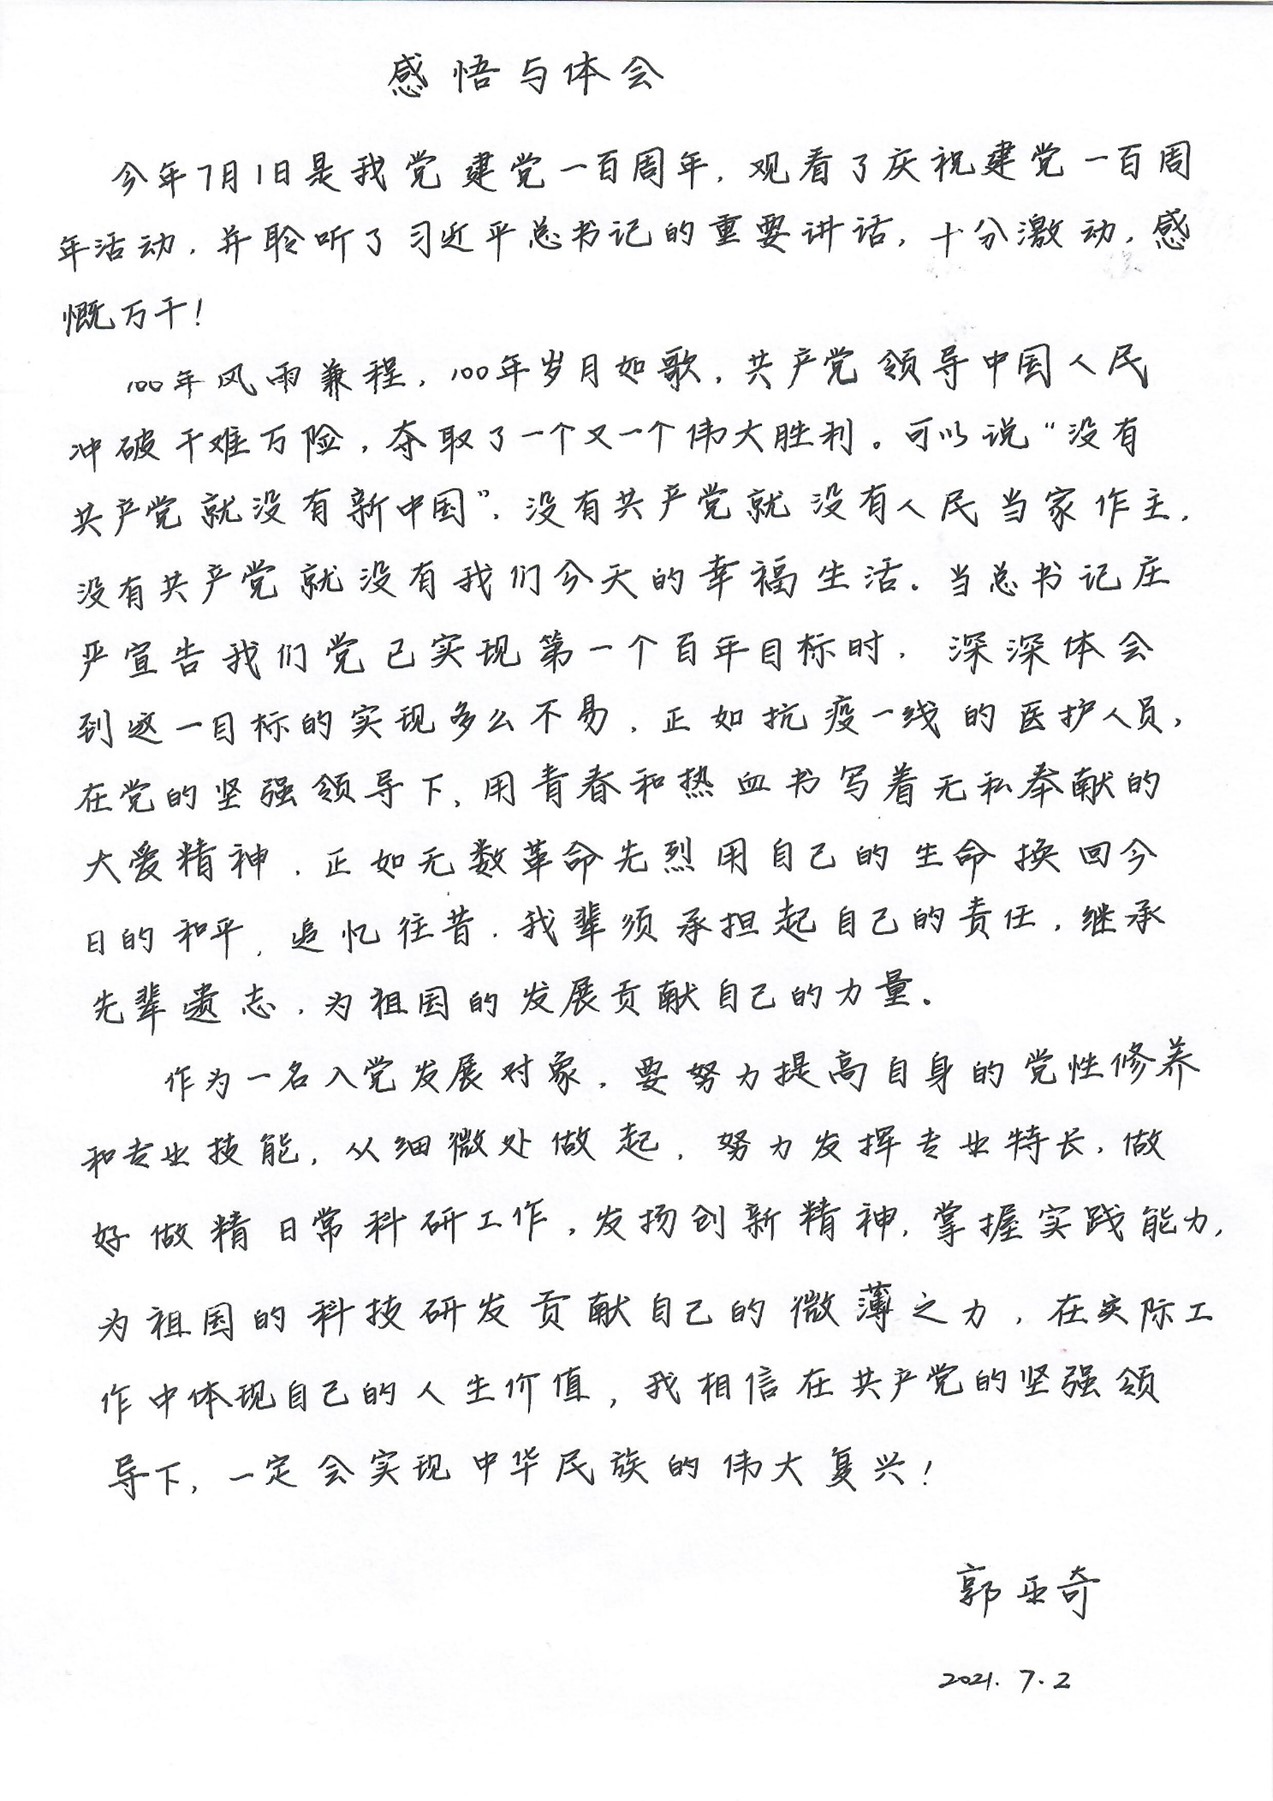 感悟与体会
今年7月1日是我党建党一百周年，观看了庆祝建党一百周
年活动，并聆听了习近平总书记的重要讲话，十分激动，感
慨万千！
100年风雨兼程，100年岁月如歌，共产党领导中国人民
冲破千难万险，夺取了一个又一个伟大胜利。可以说“没有
共产党就没有新中国”，没有共产党就没有人民当家作主，
没有共产党就没有我们今天的幸福生活。当总书记庄
严宣告我们党已实现第一个百年目标时，深深体会
到这一目标的实现多么不易，正如抗疫一线的医护人员，
在党的坚强领导下，用青春和热血书写着无私奉献的
大爱精神，正如无数革命先烈用自己的生命换回今
日的和平，追忆往昔，我辈须承担起自己的责任，继承
先辈遗志，为祖国的发展贡献自己的力量。
作为一名入党发展对象，要努力提高自身的党性修养
和专业技能，从细微处做起，努力发挥专业特长，做
好做精日常科研工作，发扬创新精神，掌握实践能力，
为祖国的科技研发贡献自己的微薄之力，在实际工
作中体现自己的人生价值，我相信在共产党的坚强领
导下，一定会实现中华民族的伟大复兴！
郭亚奇
2021.7.2